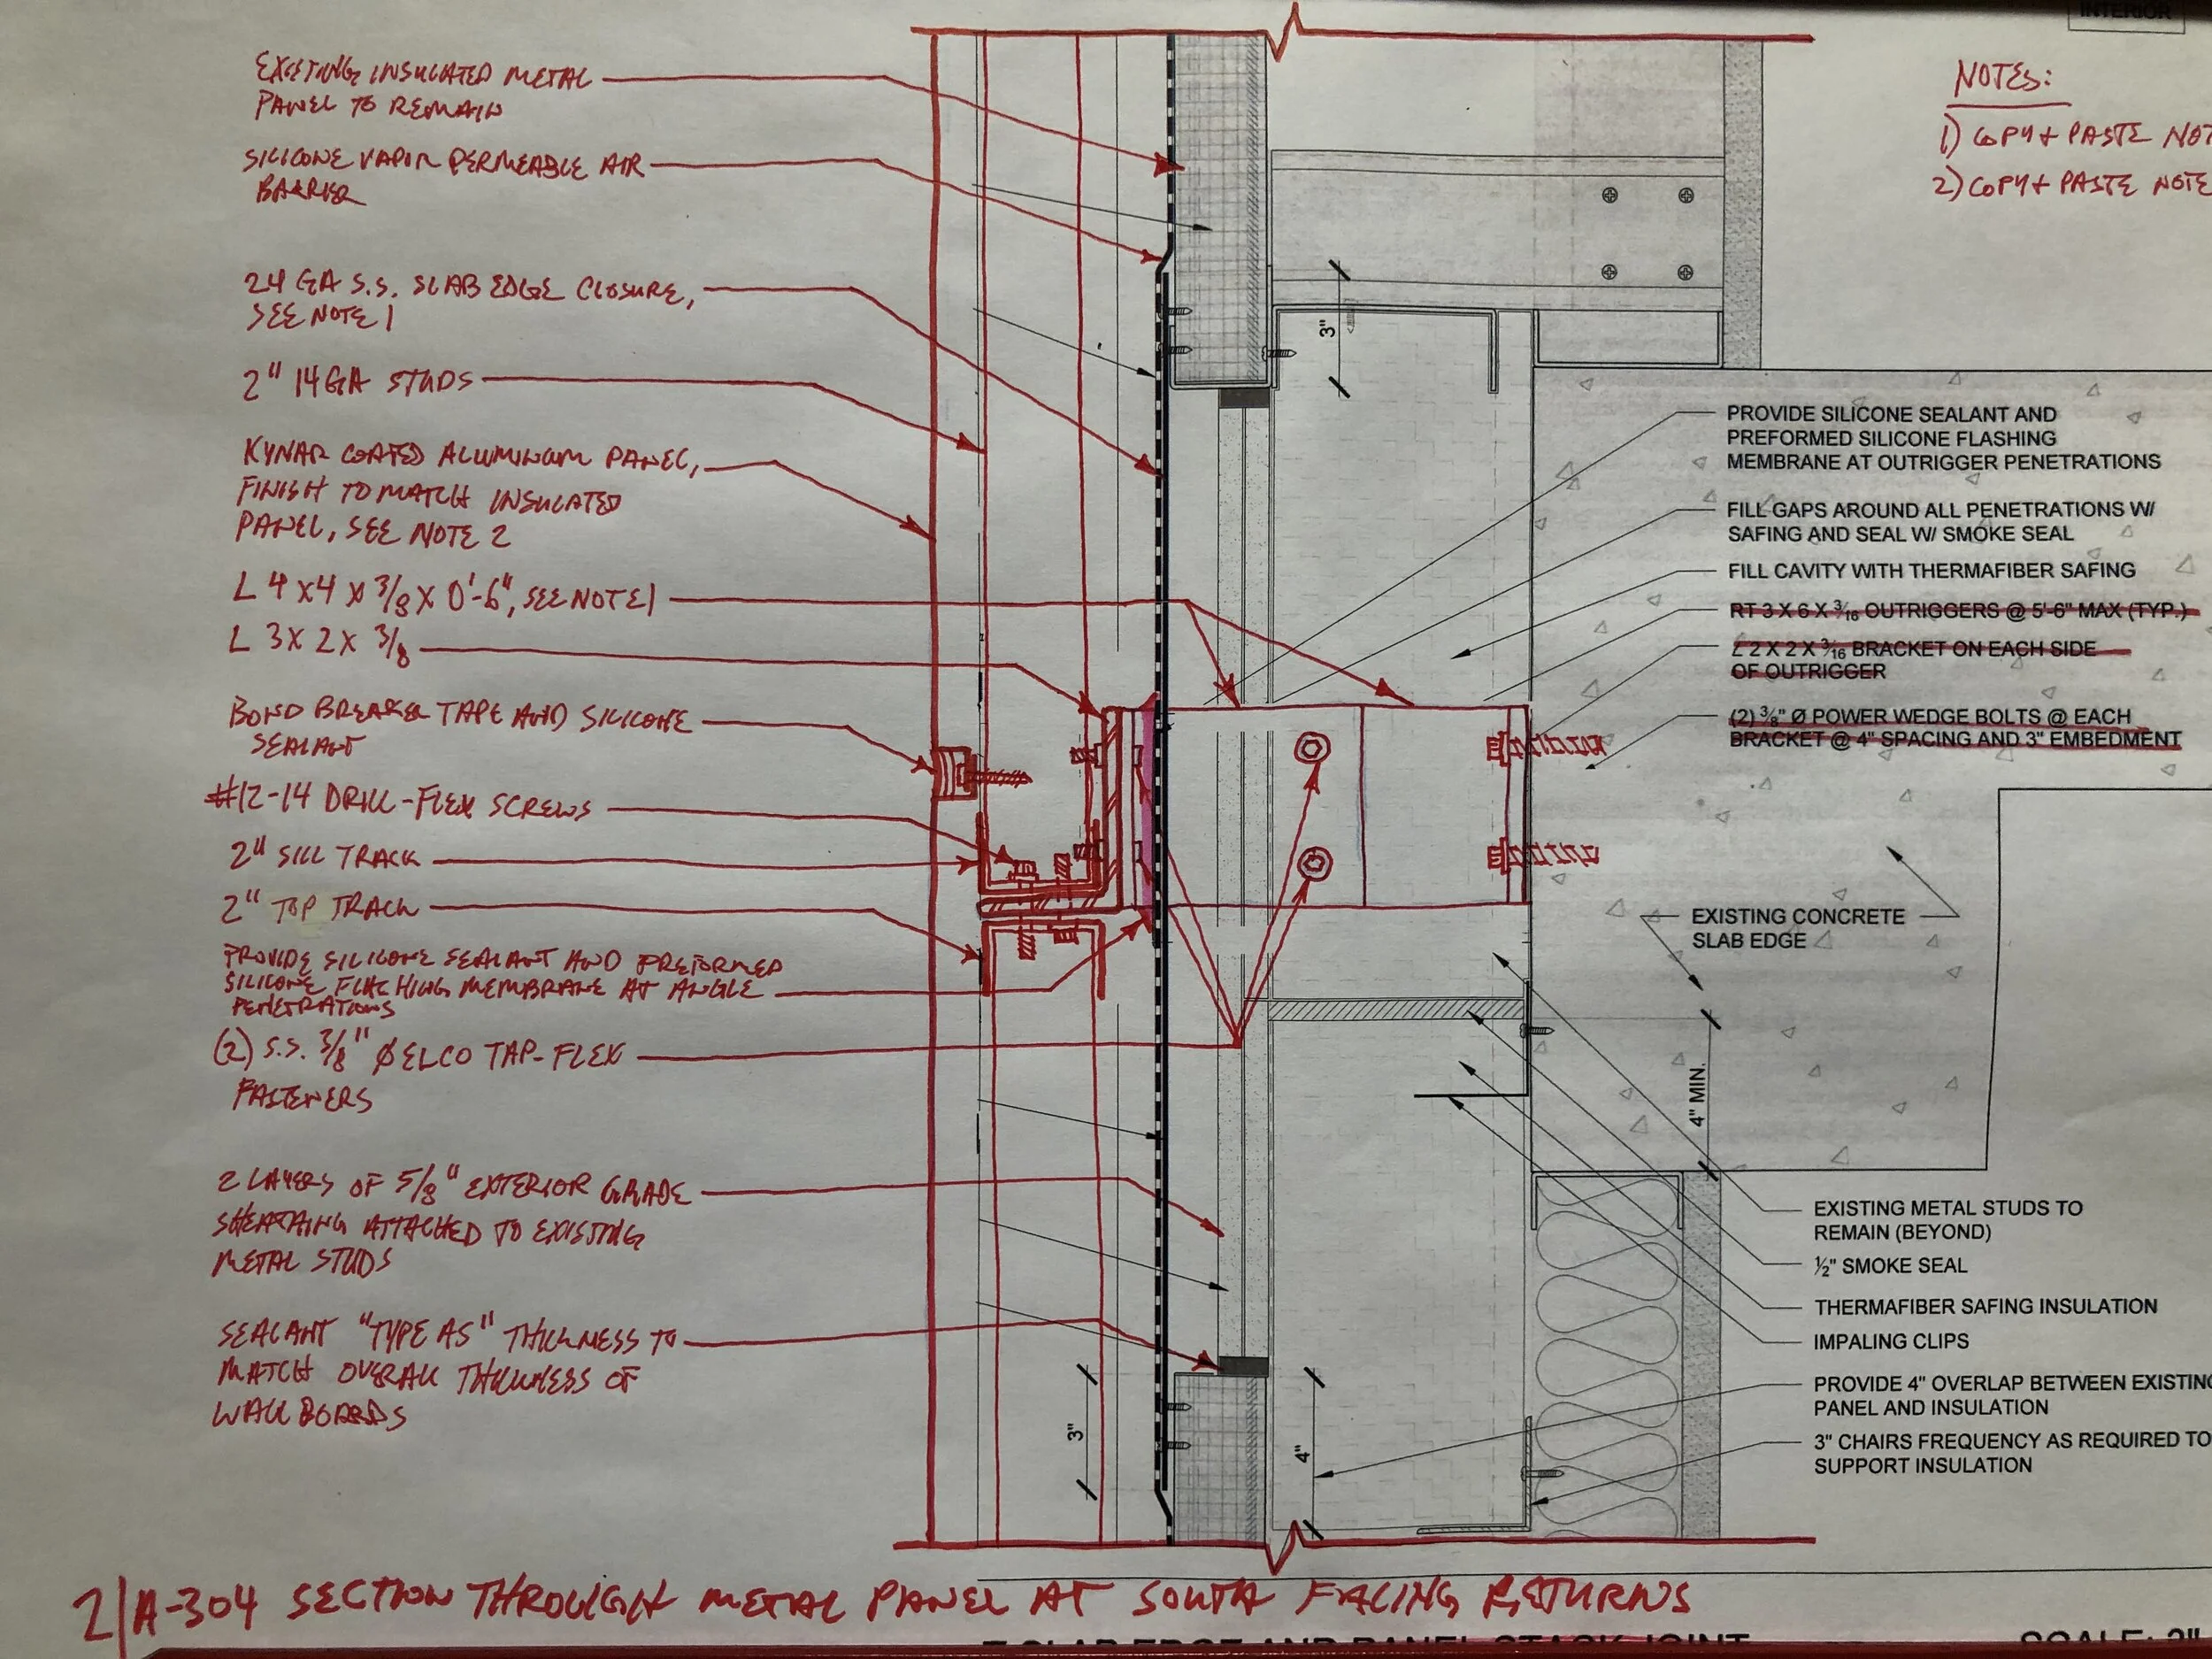 INTERIOR
NOTES:
1) COPY + PASTE NOT
2) COPY + PASTE NOTE
EXISTING INSULATED METAL
PANEL TO REMAIN
SILICONE VAPOR PERMEABLE AIR
BARRIER
24 GA S.S. SLAB EDGE CLOSURE,
SEE NOTE 1
2" 14 GA STUDS
KYNAR COATED ALUMINUM PANEL,
FINISH TO MATCH INSULATED
PANEL, SEE NOTE 2
L 4 X 4 X 3/8 X 0'-6", SEE NOTE 1
L 3 X 2 X 3/8
BOND BREAKER TAPE AND SILICONE
SEALANT
#12-14 DRILL-FLEX SCREWS
2" SILL TRACK
2" TOP TRACK
PROVIDE SILICONE SEALANT AND PREFORMED
SILICONE FLACHING MEMBRANE AT ANGLE
PENETRATIONS
(2) S.S. 3/8" Ø ELCO TAP-FLEX
FASTENERS
2 LAYERS OF 5/8" EXTERIOR GRADE
SHEATHING ATTACHED TO EXISTING
METAL STUDS
SEALANT "TYPE AS" THICKNESS TO
MATCH OVERALL THICKNESS OF
WALL BOARDS
3"
PROVIDE SILICONE SEALANT AND
PREFORMED SILICONE FLASHING
MEMBRANE AT OUTRIGGER PENETRATIONS
FILL GAPS AROUND ALL PENETRATIONS W/
SAFING AND SEAL W/ SMOKE SEAL
FILL CAVITY WITH THERMAFIBER SAFING
RT 3 X 6 X 3/16 OUTRIGGERS @ 5'-6" MAX (TYP.)
L 2 X 2 X 3/16 BRACKET ON EACH SIDE
OF OUTRIGGER
(2) 3/8" Ø POWER WEDGE BOLTS @ EACH
BRACKET @ 4" SPACING AND 3" EMBEDMENT
EXISTING CONCRETE
SLAB EDGE
4" MIN.
EXISTING METAL STUDS TO
REMAIN (BEYOND)
½" SMOKE SEAL
THERMAFIBER SAFING INSULATION
IMPALING CLIPS
PROVIDE 4" OVERLAP BETWEEN EXISTING
PANEL AND INSULATION
3" CHAIRS FREQUENCY AS REQUIRED TO
SUPPORT INSULATION
3"
4"
2/A-304 SECTION THROUGH METAL PANEL AT SOUTH FACING RETURNS
SLAB EDGE AND PANEL STACK JOINT
SCALE: 3"